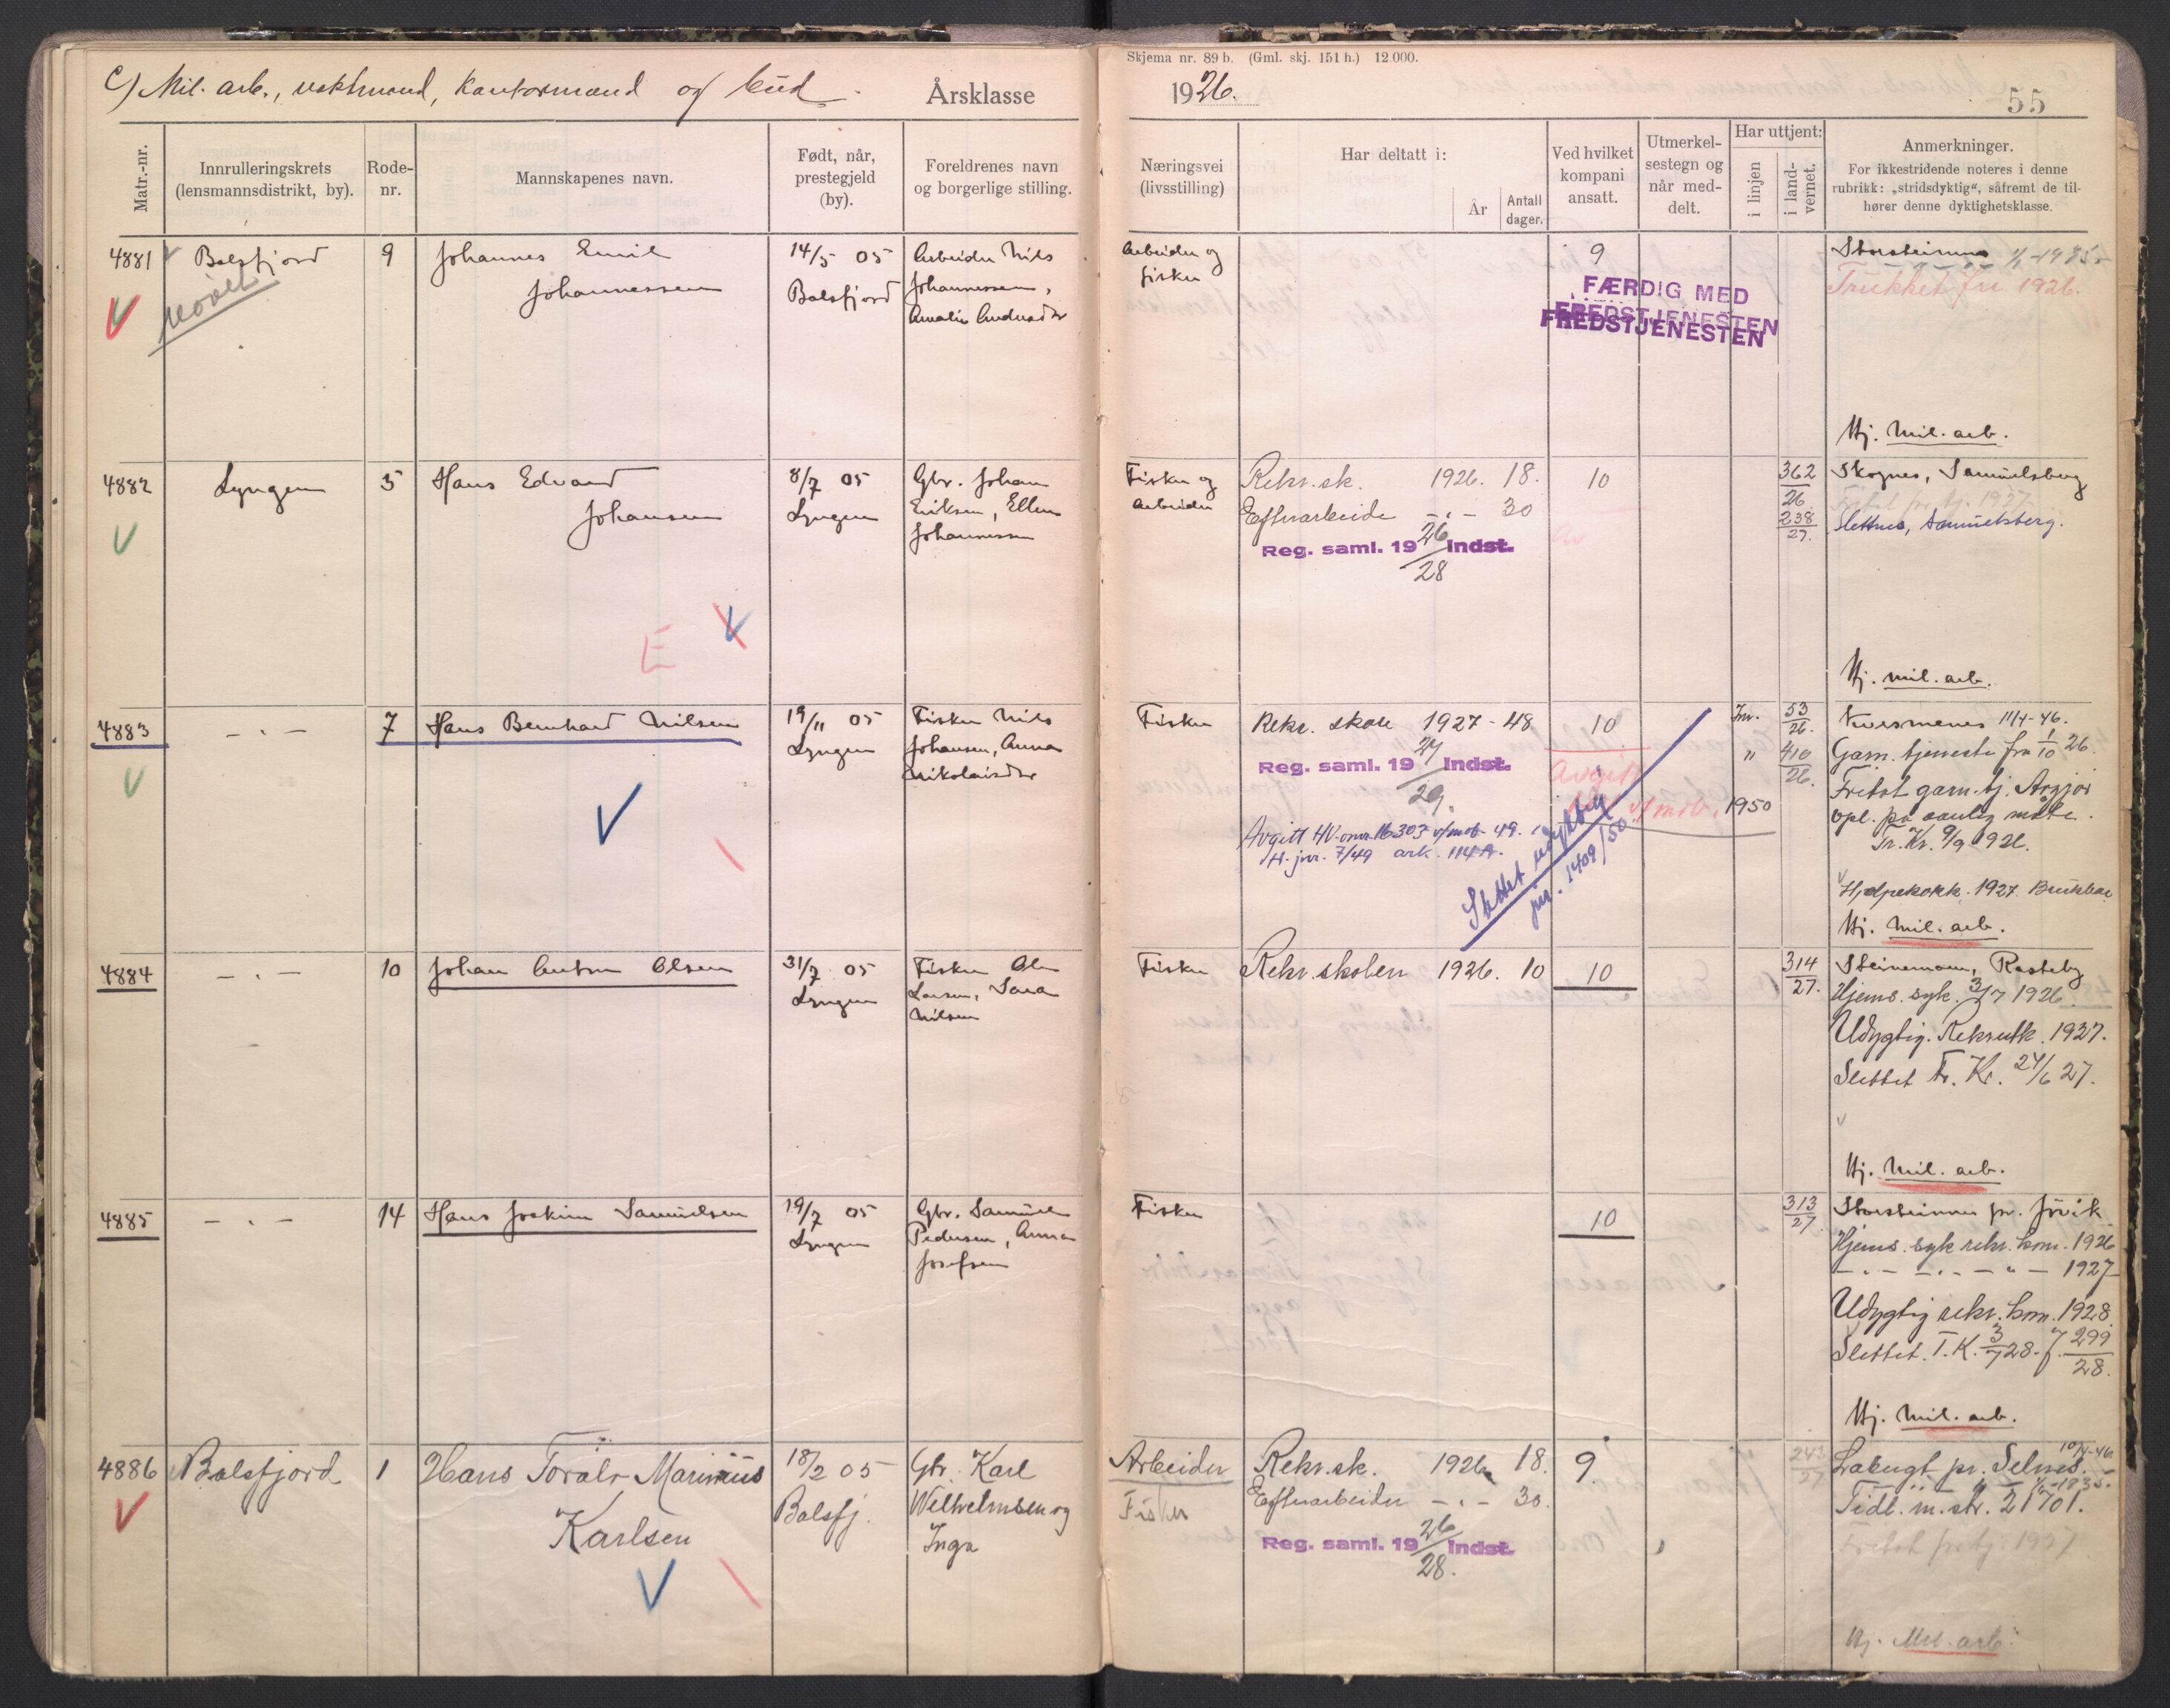 C) Mil. arb., vaktmænd, kontormænd og bud.
Årsklasse
Skjema nr. 89 b. (Gml. skj. 151 h.) 12 000.
1926.
55
Matr.-nr.
Innrulleringskrets (lensmannsdistrikt, by).
Rode-nr.
Mannskapenes navn.
Født, når, prestegjeld (by).
Foreldrenes navn og borgerlige stilling.
Næringsvei (livsstilling)
Har deltatt i:
År
Antall dager.
Ved hvilket kompani ansatt.
Utmerkelsestegn og når meddelt.
Har uttjent:
i linjen
i landvernet.
Anmerkninger.
For ikkestridende noteres i denne rubrikk: „stridsdyktig", såfremt de tilhører denne dyktighetsklasse.
4881
Balsfjord
9
Johannes Emil
Johannessen
14/5 05
Balsfjord
Arbeider Nils
Johannessen,
Amalie
Arbeider og
fisker
9
FÆRDIG MED
FREDSTJENESTEN
FREDSTJENESTEN
Storsteinnes 1/1-1935
Trukket fri 1926.
Hj. Mil. arb.
4882
Lyngen
5
Hans Edvard
Johansen
8/7 05
Lyngen
Gbr. Johan
Eriksen, Ellen
Johannessen
E
Fisker og
arbeider
Rekr. sk. 1926. 18.
Efterarbeide -"- 30
Reg. saml. 19 26/28 Indst.
10
362/26
238/27.
Skognes, Samuelsberg
Fritat for tj. 1937
Slettnes, Samuelsberg.
Hj. mil. arb.
4883
-"-
7
Hans Bernhard Nilsen
19/11 05
Lyngen
Fisker Nils
Johansen, Anna
Nikolaisdtr
Fisker
Rekr. skole 1927 - 48
Reg. saml. 19 27/29. Indst.
Avgitt HV-omr. 16303 v/mob. 49.
H. jnr. 7/49 ark. 114A.
Slettet udyktig
jnr. 1409/50
10
Avgitt
v/mob.
1950
Inr. 53/26.
" 410/26.
Kvesmenes 11/4-46.
Garn. tjeneste fra 1/10 26.
Fritat garn. tj.
opl. på vanlig måte.
Tr. Kr. 9/9 1926.
Hjelpekokk. 1927. Brukbar
Hj. mil. arb.
4884
-"-
10
Johan Anton Olsen
31/7 05
Lyngen
Fisker Ole
Larsen, Sara
Nilsen
Fisker
Rekr. skolen 1926. 10
10
314/27.
Steinemoen, Rasteby
Hjems. syk. 3/7 1926.
Udygtig. Rekrutk. 1927.
Slettet Tr. Kr. 24/6 27.
Hj. Mil. arb.
4885
-"-
14
Hans Joakim Samuelsen
19/7 05
Lyngen
Gbr. Samuel
Pedersen, Anna
Josefsen
Fisker
10
313/27
Storsteinnes pr. Jövik
Hjems. syk rekr. kom. 1926
-"- -"- -"- 1927
Udygtig rekr. kom. 1928.
Slettet. T. K. 3/7 28. J. 299/28.
Hj. Mil. arb.
4886
Balsfjord
1
Hans Toralv Marinius
Karlsen
18/2 05
Balsfj.
Gbr. Karl
Wilhelmsen og
Inga
Arbeider
Fisker
Rekr. sk. 1926 18.
Efterarbeider -"- 30.
Reg. saml. 19 26/28. Indst.
9.
243/27
Lakugt pr. Selnes. 10/4-46
Tidl. m. str. 21701.
Fritat for tj. 1937
Hj. Mil. arb.